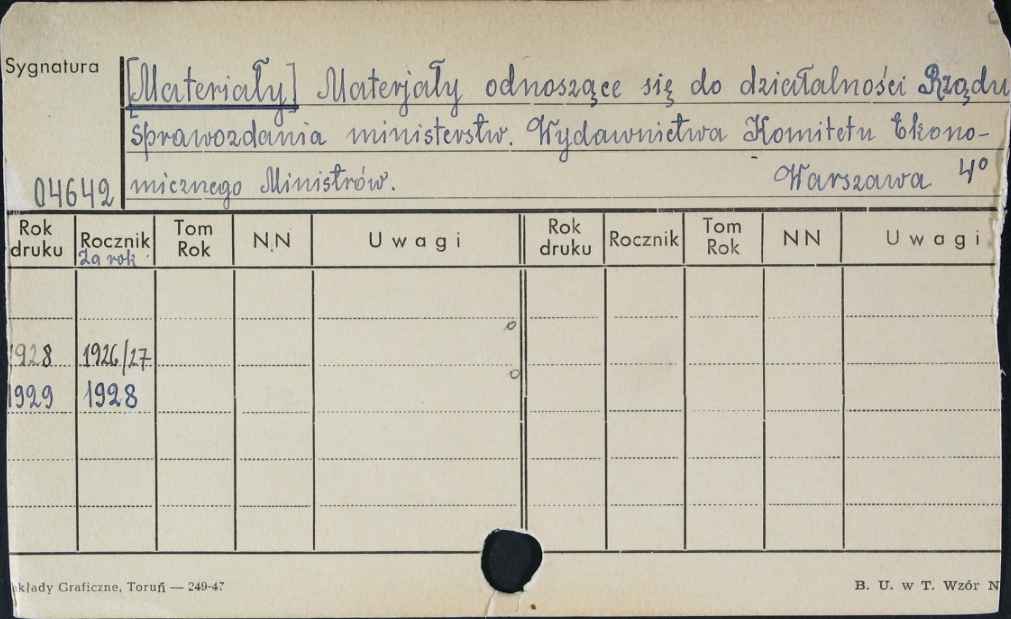 Sygnatura
[Materiały] Materjały odnoszące się do działalności Rządu
Sprawozdania ministerstw. Wydawnictwa Komitetu Ekono-
04642 micznego Ministrów. Warszawa 4º
Rok druku Rocznik Tom Rok N.N Uwagi Rok druku Rocznik Tom Rok NN Uwagi
Za rok
1928 1926/27
1929 1928
kłady Graficzne, Toruń — 249-47 B. U. w T. Wzór N